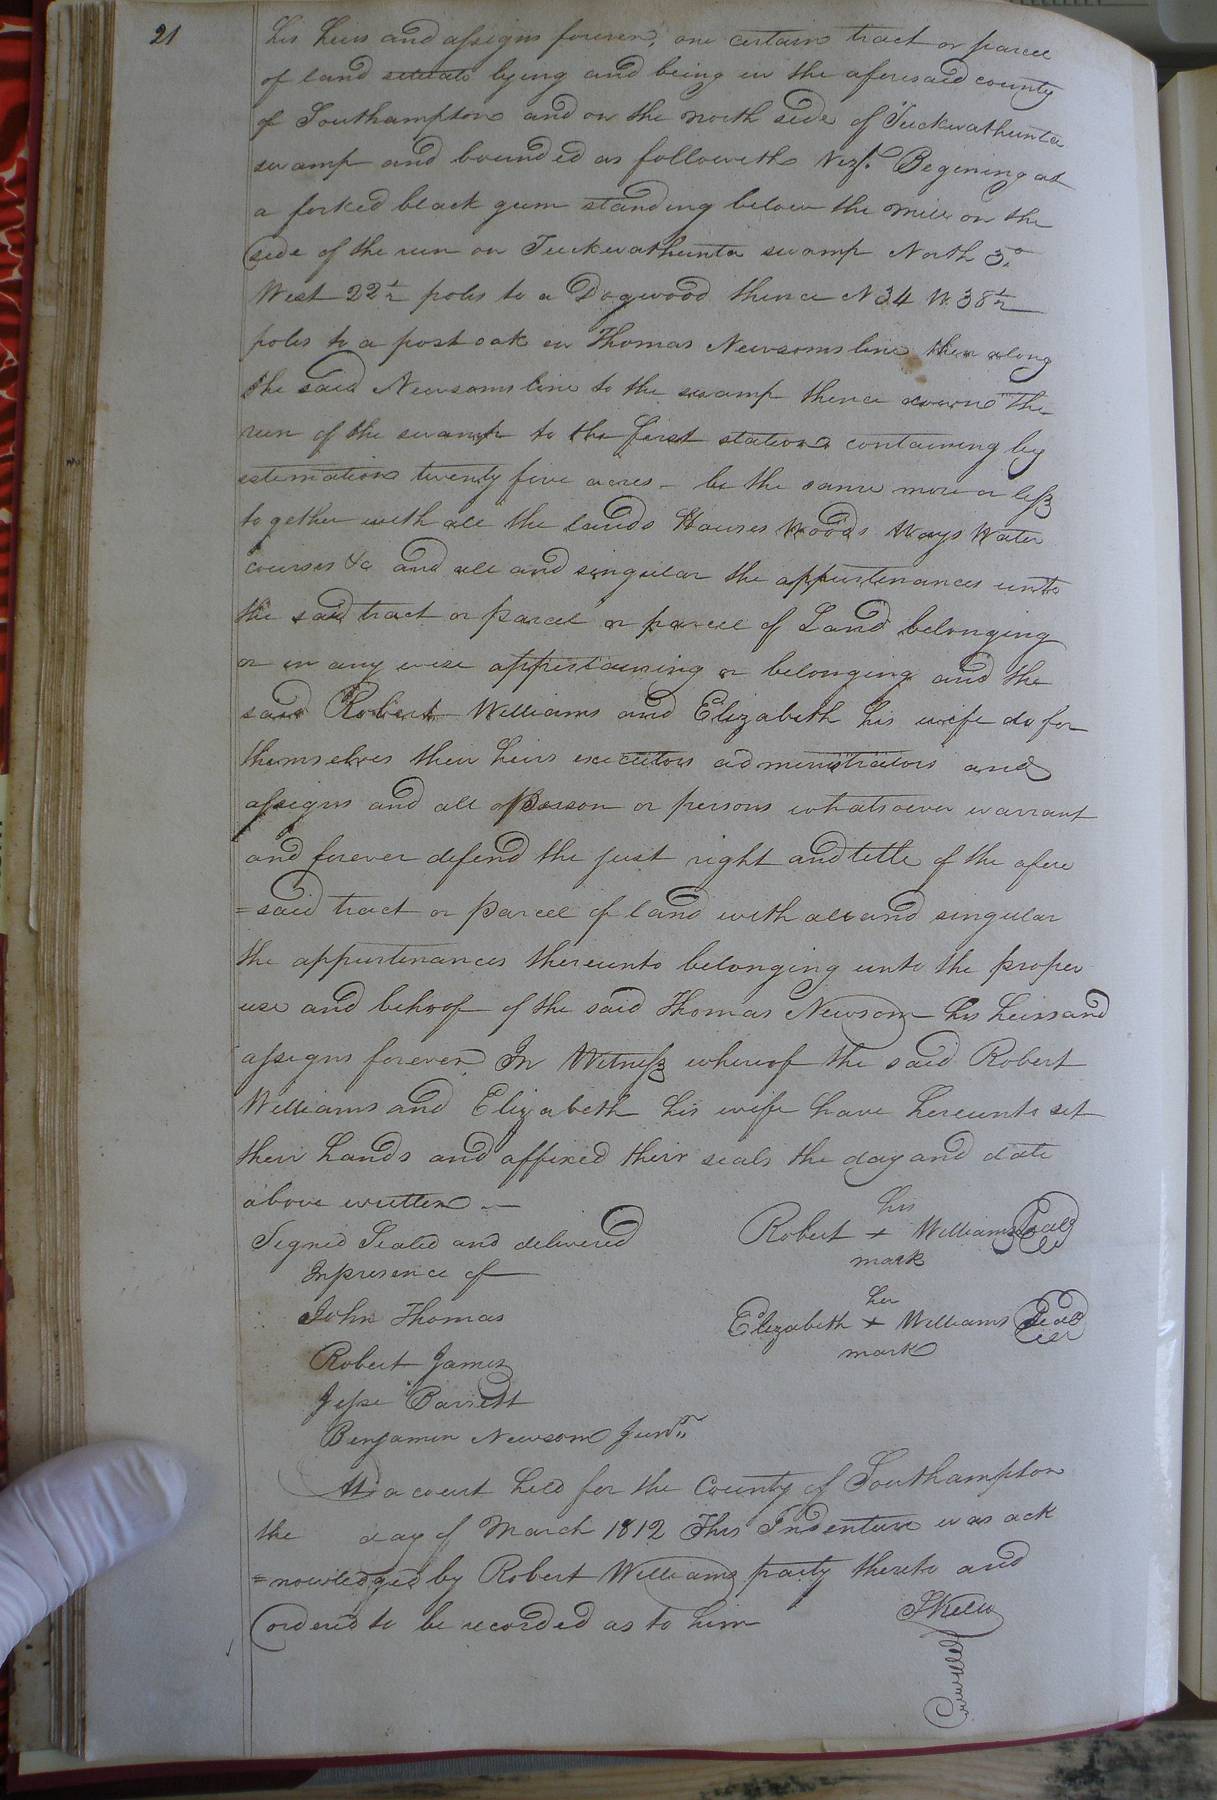 21
his heirs and assigns forever, one certain tract or parcel
of land situate lying and being in the aforesaid county
of Southampton and on the north side of Tuckwathunta
swamp and bounded as followeth Vizt. Begining at
a forked black gum standing below the mill on the
side of the run on Tuckwathunta swamp North 3.°
West 22½ poles to a Dogwood thence N 34 W. 38½
poles to a post oak in Thomas Newsoms line then along
the said Newsoms line to the swamp thence down the
run of the swamp to the first station containing by
estimation twenty five acres – be the same more or less
together with all the lands Houses Woods Ways Water
courses &c and all and singular the appurtenances unto
the said tract or parcel or parcel of Land belonging
or in any wise appertaining or belonging and the
said Robert Williams and Elizabeth his wife do for
themselves their heirs executors administrators and
assigns and all person or persons whatsoever warrant
and forever defend the just right and title of the afore
=said tract or parcel of land with all and singular
the appurtenances thereunto belonging unto the proper
use and behoof of the said Thomas Newsom his heirs and
assigns forever In Witness whereof the said Robert
Williams and Elizabeth his wife have hereunto set
their hands and affixed their seals the day and date
above written —
his
Signed Sealed and delivered Robert + Williams Seal
Inpresence of mark
her
John Thomas Elizabeth + Williams Seal
Robert James mark
Jesse Barrett
Benjamin Newsom Junr.
At a court held for the County of Southampton
the day of March 1812 This Indenture was ack
=nowledged by Robert Williams party thereto and
ordered to be recorded as to him